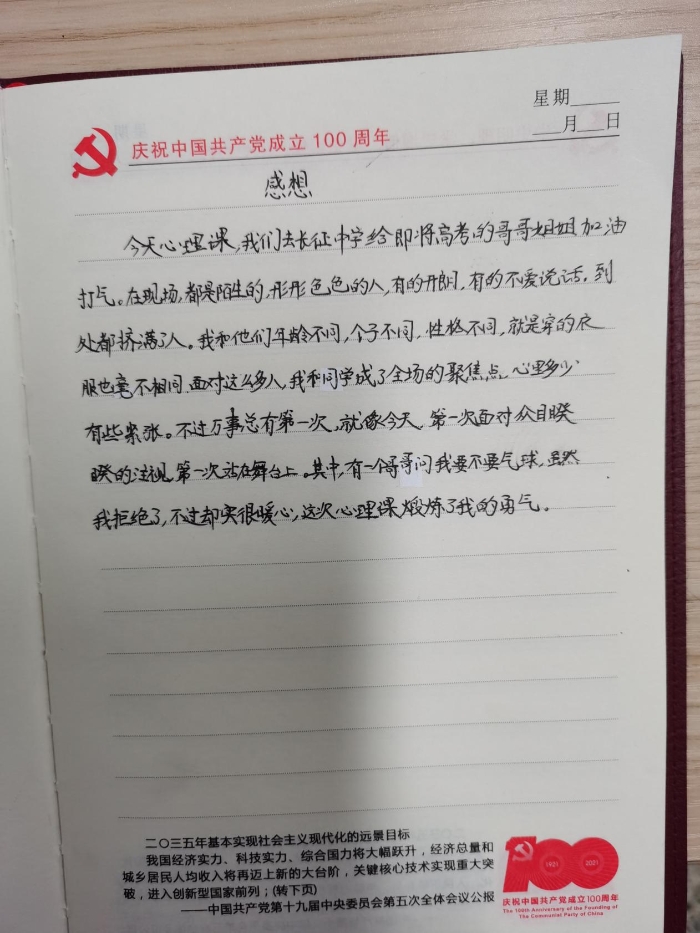 星期
月 日
庆祝中国共产党成立100周年
感想
今天心理课,我们去长征中学给即将高考的哥哥姐姐加油
打气。在现场,都是陌生的,形形色色的人,有的开朗,有的不爱说话,到
处都挤满了人。我和他们年龄不同,个子不同,性格不同,就是穿的衣
服也毫不相同。面对这么多人,我和同学成了全场的聚焦点,心里多少
有些紧张。不过万事总有第一次,就像今天,第一次面对众目睽
睽的注视,第一次站在舞台上。其中,有一个哥哥问我要不要气球,虽然
我拒绝了,不过却实很暖心,这次心理课煅炼了我的勇气。
二〇三五年基本实现社会主义现代化的远景目标
我国经济实力、科技实力、综合国力将大幅跃升,经济总量和
城乡居民人均收入将再迈上新的大台阶,关键核心技术实现重大突
破,进入创新型国家前列;(转下页)
——中国共产党第十九届中央委员会第五次全体会议公报
100
1921 2021
庆祝中国共产党成立100周年
The 100th Anniversary of the Founding of
The Communist Party of China